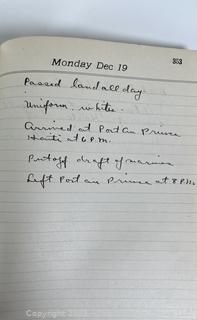 Monday Dec 19
353
Passed land all day
Uniform, whites.
Arrived at Port Au Prince
Haiti at 6 P.M.
Put off draft of marines
Left Port au Prince at 8 P.M.
Copyright